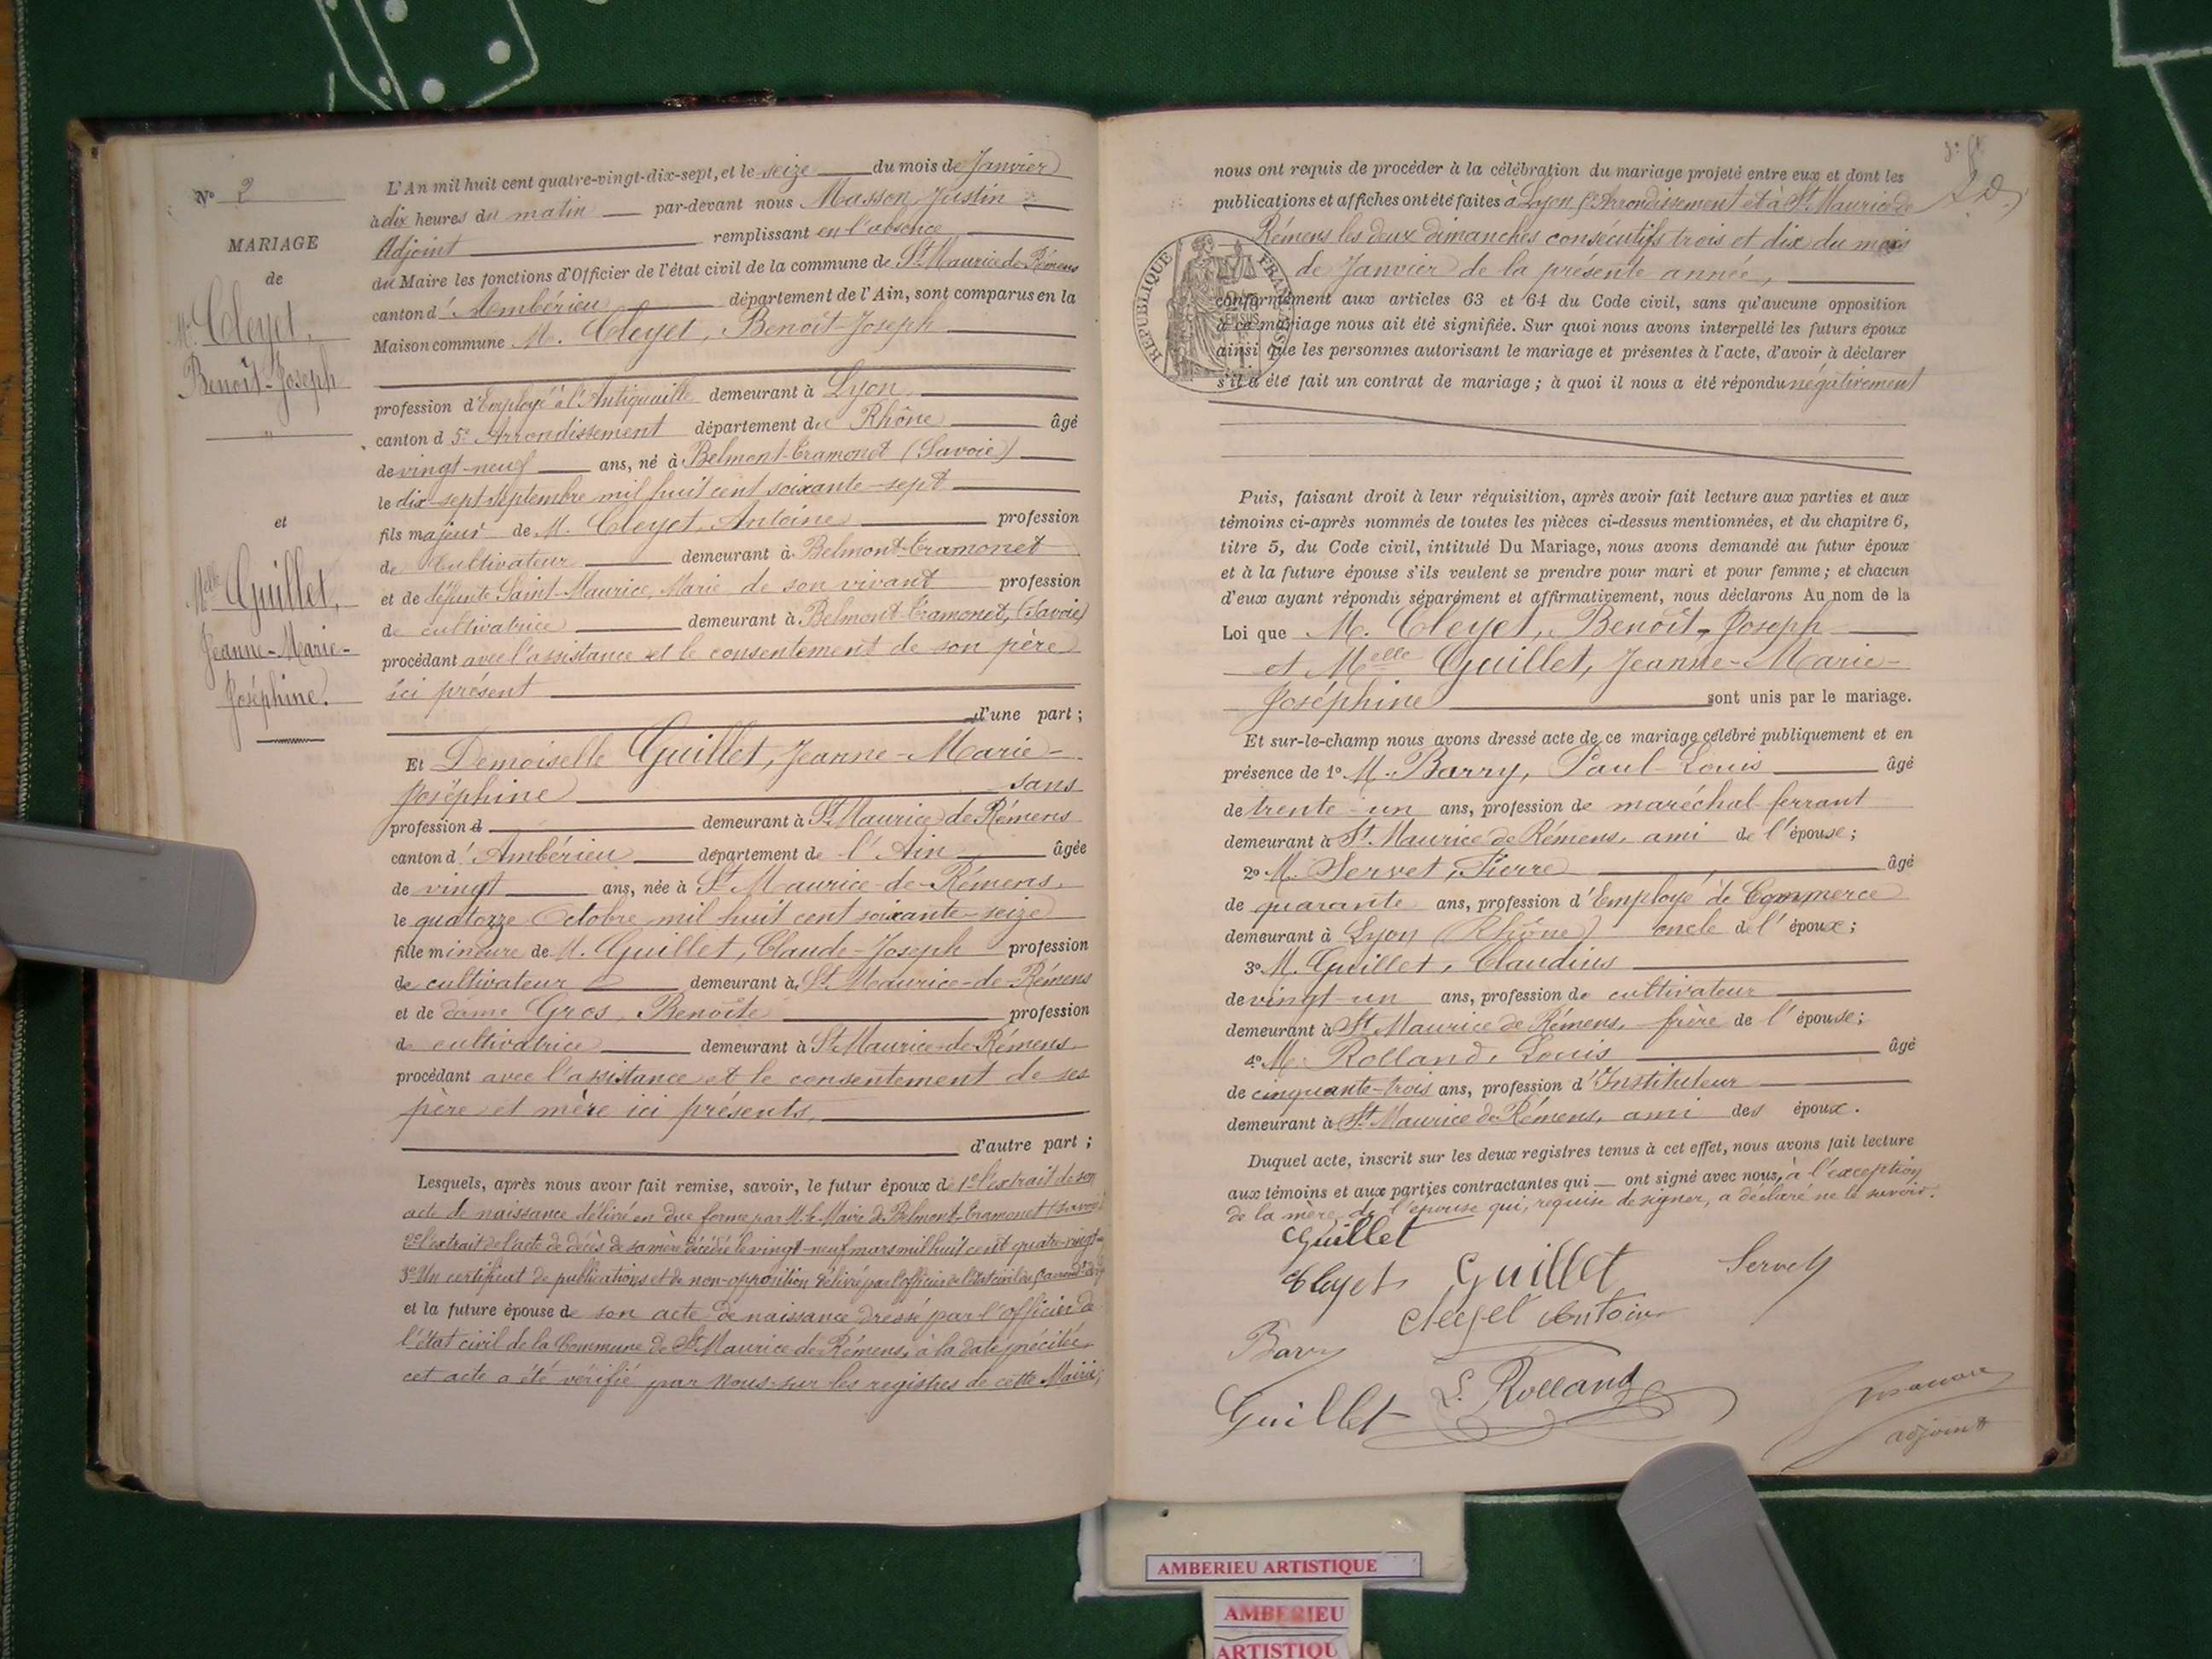 N° 2
MARIAGE
de
Mr Cleyet,
Benoît-Joseph
et
Melle Guillet,
Jeanne-Marie-
Joséphine.
L'An mil huit cent quatre-vingt-dix-sept, et le seize du mois de Janvier
à dix heures du matin par-devant nous Masson Justin
Adjoint remplissant en l'absence
du Maire les fonctions d'Officier de l'état civil de la commune de St Maurice de Rémens
canton d'Ambérieu département de l'Ain, sont comparus en la
Maison commune M. Cleyet, Benoît-Joseph
profession d'Employé à l'Antiquaille demeurant à Lyon
canton d 5e Arrondissement département du Rhône âgé
de vingt-neuf ans, né à Belmont-Tramonet (Savoie)
le dix-sept septembre mil huit cent soixante-sept
fils majeur de M. Cleyet, Antoine profession
de cultivateur demeurant à Belmont-Tramonet
et de défunte Saint-Maurice, Marie de son vivant profession
de cultivatrice demeurant à Belmont-Tramonet, (Savoie)
procédant avec l'assistance et le consentement de son père
ici présent
d'une part ;
Et Demoiselle Guillet, Jeanne-Marie-
Joséphine sans
profession d demeurant à St Maurice de Rémens
canton d'Ambérieu département de l'Ain âgée
de vingt ans, née à St Maurice-de-Rémens,
le quatorze Octobre mil huit cent soixante-seize
fille mineure de M. Guillet, Claude-Joseph profession
de cultivateur demeurant à St Maurice-de-Rémens
et de dame Gros, Benoîte profession
de cultivatrice demeurant à St Maurice-de-Rémens
procédant avec l'assistance et le consentement de ses
père et mère ici présents,
d'autre part ;
Lesquels, après nous avoir fait remise, savoir, le futur époux de 1° l'extrait de son
acte de naissance délivré en due forme par M. le Maire de Belmont-Tramonet (Savoie)
2° l'extrait de l'acte de décès de sa mère décédée le vingt-neuf mars mil huit cent quatre-vingt-
3° Un certificat de publications et de non-opposition délivré par l'officier de l'état civil du
et la future épouse de son acte de naissance dressé par l'officier de
l'état civil de la Commune de St Maurice-de-Rémens, à la date précitée
cet acte a été vérifié par Nous sur les registres de cette Mairie,
nous ont requis de procéder à la célébration du mariage projeté entre eux et dont les
publications et affiches ont été faites à Lyon 5e Arrondissement et à St Maurice de
Rémens les deux dimanches consécutifs trois et dix du mois
de Janvier de la présente année,
RÉPUBLIQUE FRANÇAISE
conformément aux articles 63 et 64 du Code civil, sans qu'aucune opposition
à ce mariage nous ait été signifiée. Sur quoi nous avons interpellé les futurs époux
ainsi que les personnes autorisant le mariage et présentes à l'acte, d'avoir à déclarer
s'il a été fait un contrat de mariage ; à quoi il nous a été répondu négativement
Puis, faisant droit à leur réquisition, après avoir fait lecture aux parties et aux
témoins ci-après nommés de toutes les pièces ci-dessus mentionnées, et du chapitre 6,
titre 5, du Code civil, intitulé Du Mariage, nous avons demandé au futur époux
et à la future épouse s'ils veulent se prendre pour mari et pour femme ; et chacun
d'eux ayant répondu séparément et affirmativement, nous déclarons Au nom de la
Loi que M. Cleyet, Benoît-Joseph
et Melle Guillet, Jeanne-Marie-
Joséphine sont unis par le mariage.
Et sur-le-champ nous avons dressé acte de ce mariage célébré publiquement et en
présence de 1° M. Barry, Paul-Louis âgé
de trente-un ans, profession de maréchal-ferrant
demeurant à St Maurice de Rémens, ami de l'épouse ;
2° M. Servet, Pierre âgé
de quarante ans, profession d'Employé de Commerce
demeurant à Lyon (Rhône) oncle de l'époux ;
3° M. Guillet, Claudius
de vingt-un ans, profession de cultivateur
demeurant à St Maurice de Rémens, frère de l'épouse ;
4° M. Rolland, Louis âgé
de cinquante-trois ans, profession d'Instituteur
demeurant à St Maurice de Rémens, ami des époux.
Duquel acte, inscrit sur les deux registres tenus à cet effet, nous avons fait lecture
aux témoins et aux parties contractantes qui ont signé avec nous, à l'exception
de la mère de l'épouse qui, requise de signer, a déclaré ne le savoir.
Guillet
Cleyet Guillet Servet
Cleyet Antoine
Barry
Guillet L. Rolland
adjoint
AMBERIEU ARTISTIQUE
AMBERIEU
ARTISTIQU